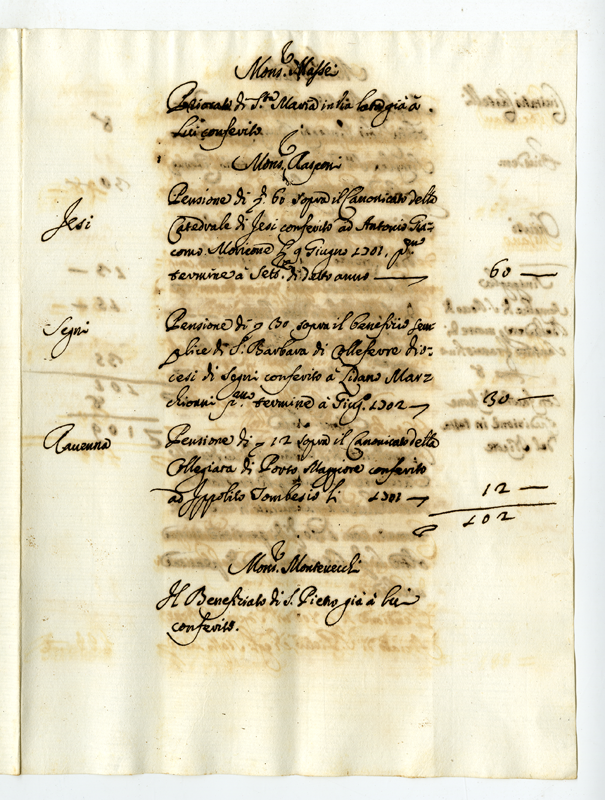 Mons.r Massei
Priorato di S.ta Maria in Via Lata già à
Lui conferito
Mons.r Rasponi
Jesi
Pensione di 60 sopra il Canonicato della
Catedrale di Jesi conferito ad Antonio Gia-
como li 9 Giugno 1701. p.mo
termine à Sett.re di d.o anno — 60 —
Segni
Pensione di 30 sopra il beneficio sem-
plice di S. Barbara di Colleferro dio-
cesi di Segni conferito à Marz
p.mo termine à Giug.o 1702 — 30 —
Ravenna
Pensione di 12 sopra il Canonicato della
Collegiata di Porto Maggiore conferito
ad Ippolito Tombesio li 1701 — 12 —
102
Mons.r Montevecchi
Il Beneficiato di S. Pietro già à lui
conferito.